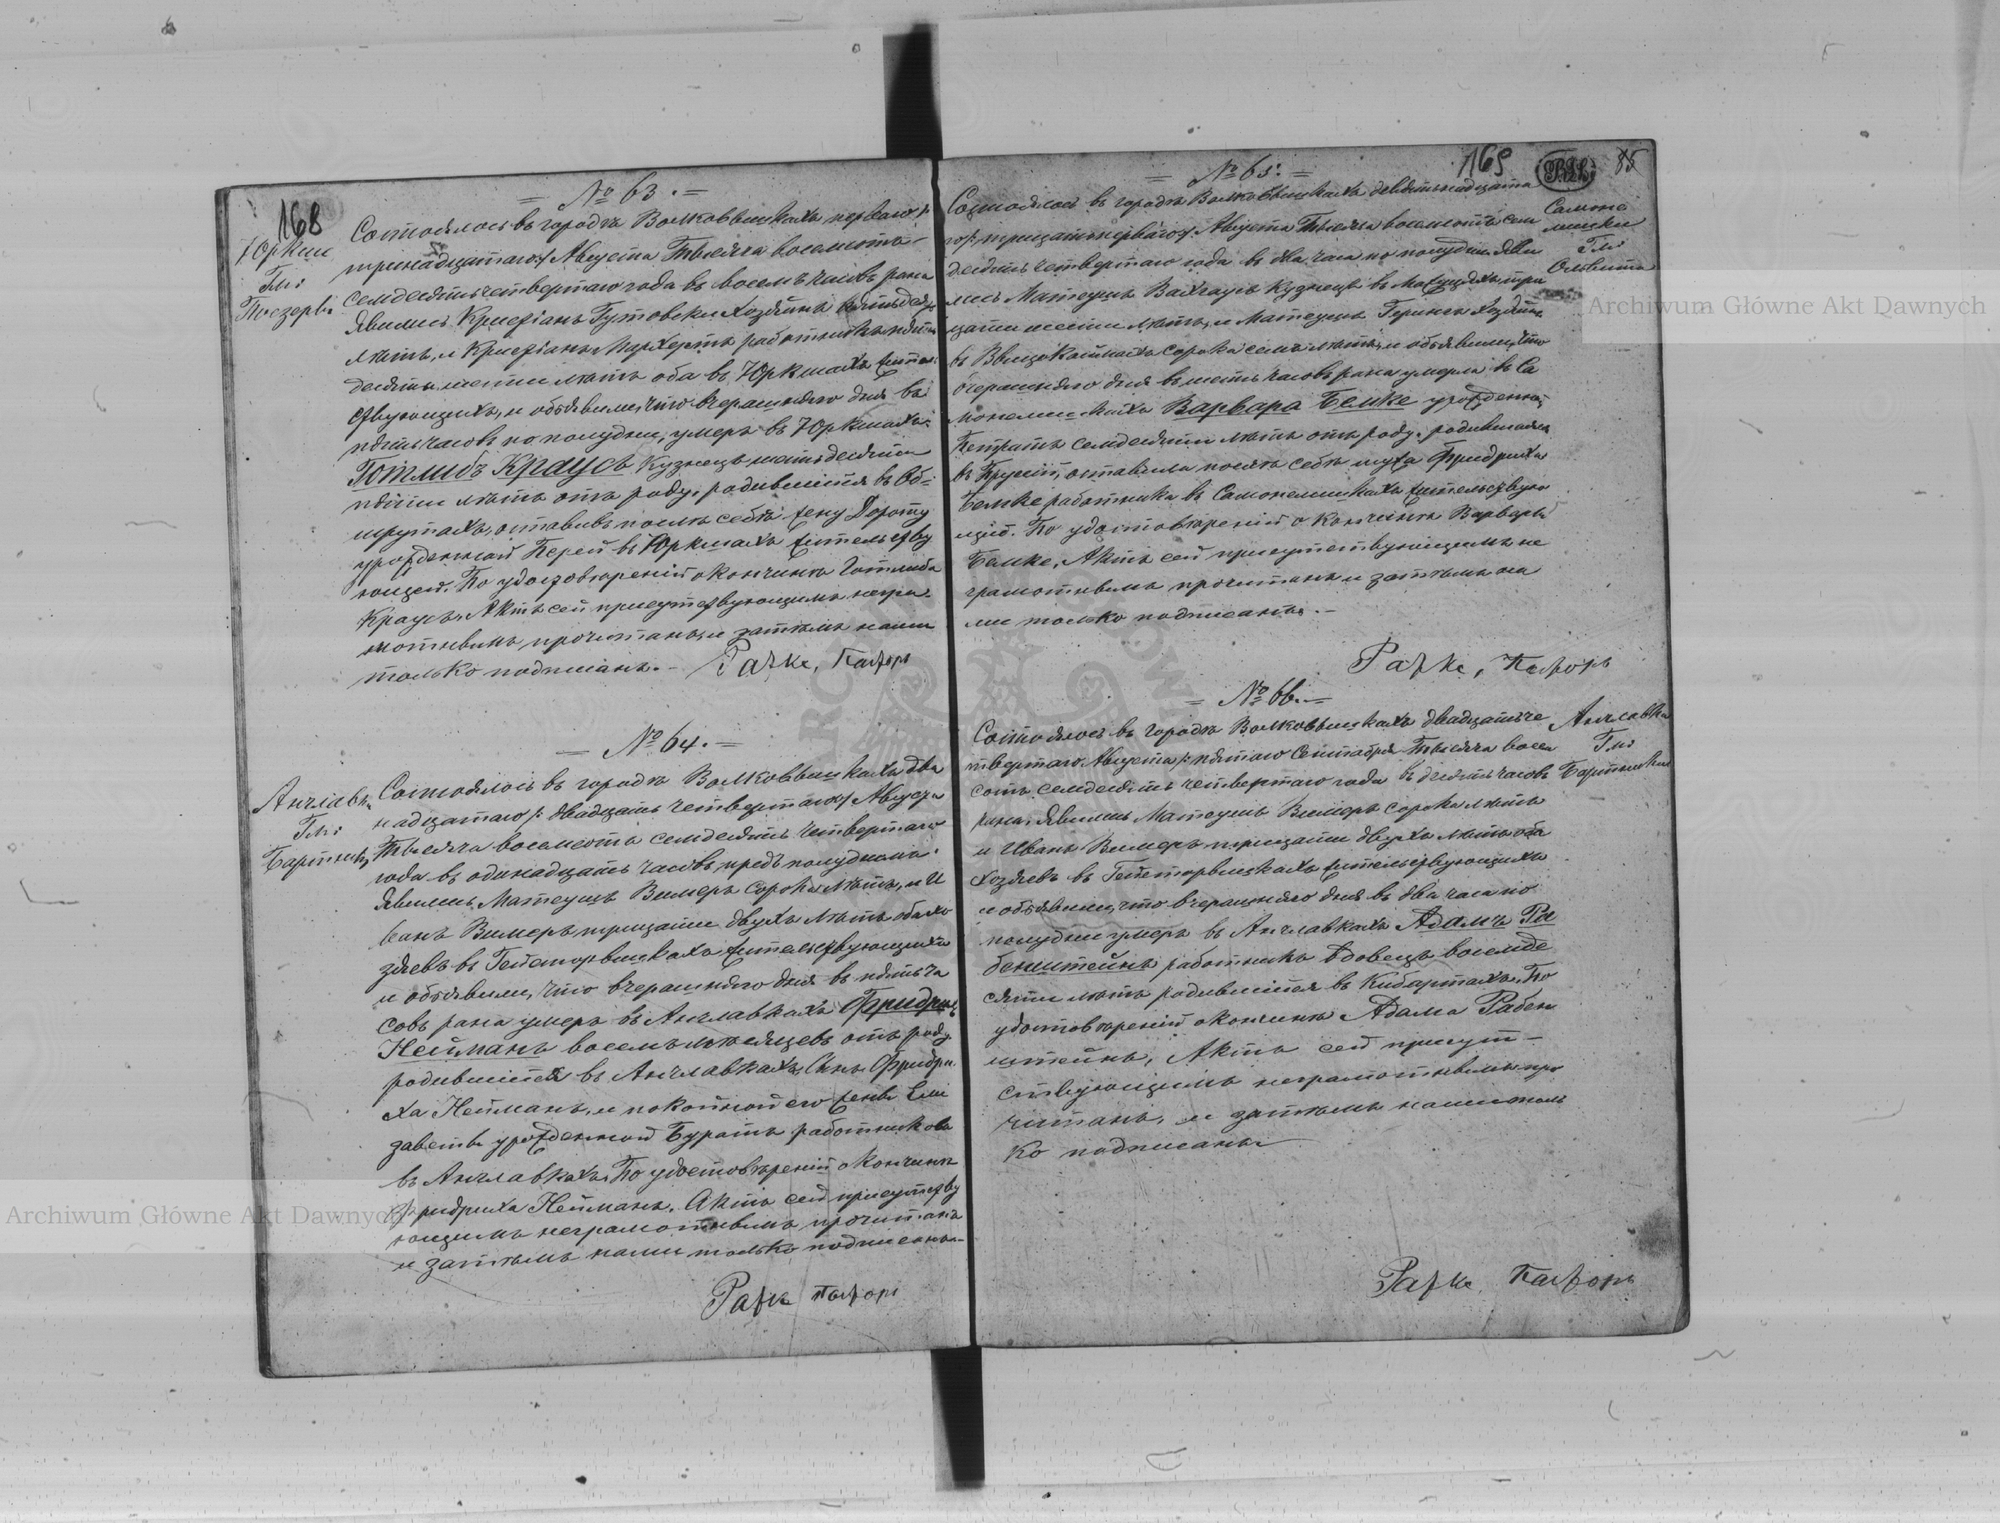 168
= № 63. =
Юркше
Гм:
Поезеры
Состоялось въ городѣ Волковышкахъ перваго /:
тринадцатаго:/ Августа Тысяча восемьсотъ
семдесятъ четвертаго года въ восемъ часовъ рана
явились Кристіанъ Гутовски хозяинъ
лѣтъ, и Кристіанъ работникъ пять
десятъ шести лѣтъ оба въ Юркшахъ житель
ствующихъ, и объявили, что вчерашняго дня въ
пять часовъ по полудни, умеръ въ Юркшахъ
Готлибъ Краусъ Кузнецъ шестьдесятъ
пяти лѣтъ отъ роду, родившійся въ Об-
шрутахъ, оставивъ послѣ себя жену Дороту
урожденной Перей въ Юркшахъ жительству
ющей. По удостовѣреніи о кончинѣ Готлиба
Краусъ, Актъ сей присутствующимъ негра-
мотнымъ прочитанъ, и затѣмъ нами
только подписанъ. – Рачке, Пасторъ
= № 64. =
Англавк
Гм:
Бартник
Состоялось въ городѣ Волковышкахъ два
надцатаго /: двадцать четвертаго:/ Августа
Тысяча восемьсотъ семдесятъ четвертаго
года въ одинадцать часовъ предъ полуднемъ
явились Матеушъ Вимеръ сорока лѣтъ, и И
ванъ Вимеръ тридцати двухъ лѣтъ оба хо
зяевъ въ жительствующихъ
и объявили, что вчерашняго дня въ пять ча
совъ рана умеръ въ Англавкахъ Фридрихъ
Нейманъ восемъ мѣсяцевъ отъ роду
родившійся въ Англавкахъ, Сынъ Фридри
ха Нейманъ, и покойной его жены Ели
заветы урожденной Буратъ работниковъ
въ Англавкахъ. По удостовѣреніи о кончинѣ
Фридриха Нейманъ, Актъ сей присутству
ющимъ неграмотнымъ прочитанъ
и затѣмъ нами только подписанъ.
Рачке Пасторъ
169
85
= № 65. =
Ольвита
Состоялось въ городѣ Волковышкахъ девятнадцата
го /: тридцать перваго:/ Августа Тысяча восемьсотъ сем
десятъ четвертаго года въ два часа по полудни яви
лись Матеушъ Кузнецъ въ три
цати шести лѣтъ, и Матеушъ Герингъ хозяинъ
въ сорока семъ лѣтъ, и объявили, что
вчерашняго дня въ шесть часовъ рана умерла въ Са
монелишкахъ Варвара Бемке урожденная
Петратъ семдесяти лѣтъ отъ роду, родившаяся
въ Пруссіи, оставила послѣ себя мужа Фридриха
Бемке работника въ Самонелишкахъ жительствую
щій. По удостовѣреніи о кончинѣ Варвары
Бемке, Актъ сей присутствующимъ не
грамотнымъ прочитанъ и затѣмъ на
ми только подписанъ. –
Рачке, Пасторъ
= № 66. =
Англавки
Гм:
Бартники
Состоялось въ городѣ Волковышкахъ двадцать че
твертаго Августа /: пятаго Сентября Тысяча восем
сотъ семдесятъ четвертаго года въ десять часовъ
рана, явились Матеушъ Вимеръ сорока лѣтъ
и Иванъ Вимеръ тридцати двухъ лѣтъ оба
хозяевъ въ жительствующихъ
и объявили, что вчерашняго дня въ два часа по
полудни умеръ въ Англавкахъ Адамъ Ра
бенштейнъ работникъ Вдовецъ восемде
сяти лѣтъ родившійся въ Кибартахъ. По
удостовѣреніи о кончинѣ Адама Рабен
штейнъ, Актъ сей присут-
ствующимъ неграмотнымъ про
читанъ, и затѣмъ нами толь
ко подписанъ
Рачке, Пасторъ
Archiwum Główne Akt Dawnych
Archiwum Główne Akt Dawnych